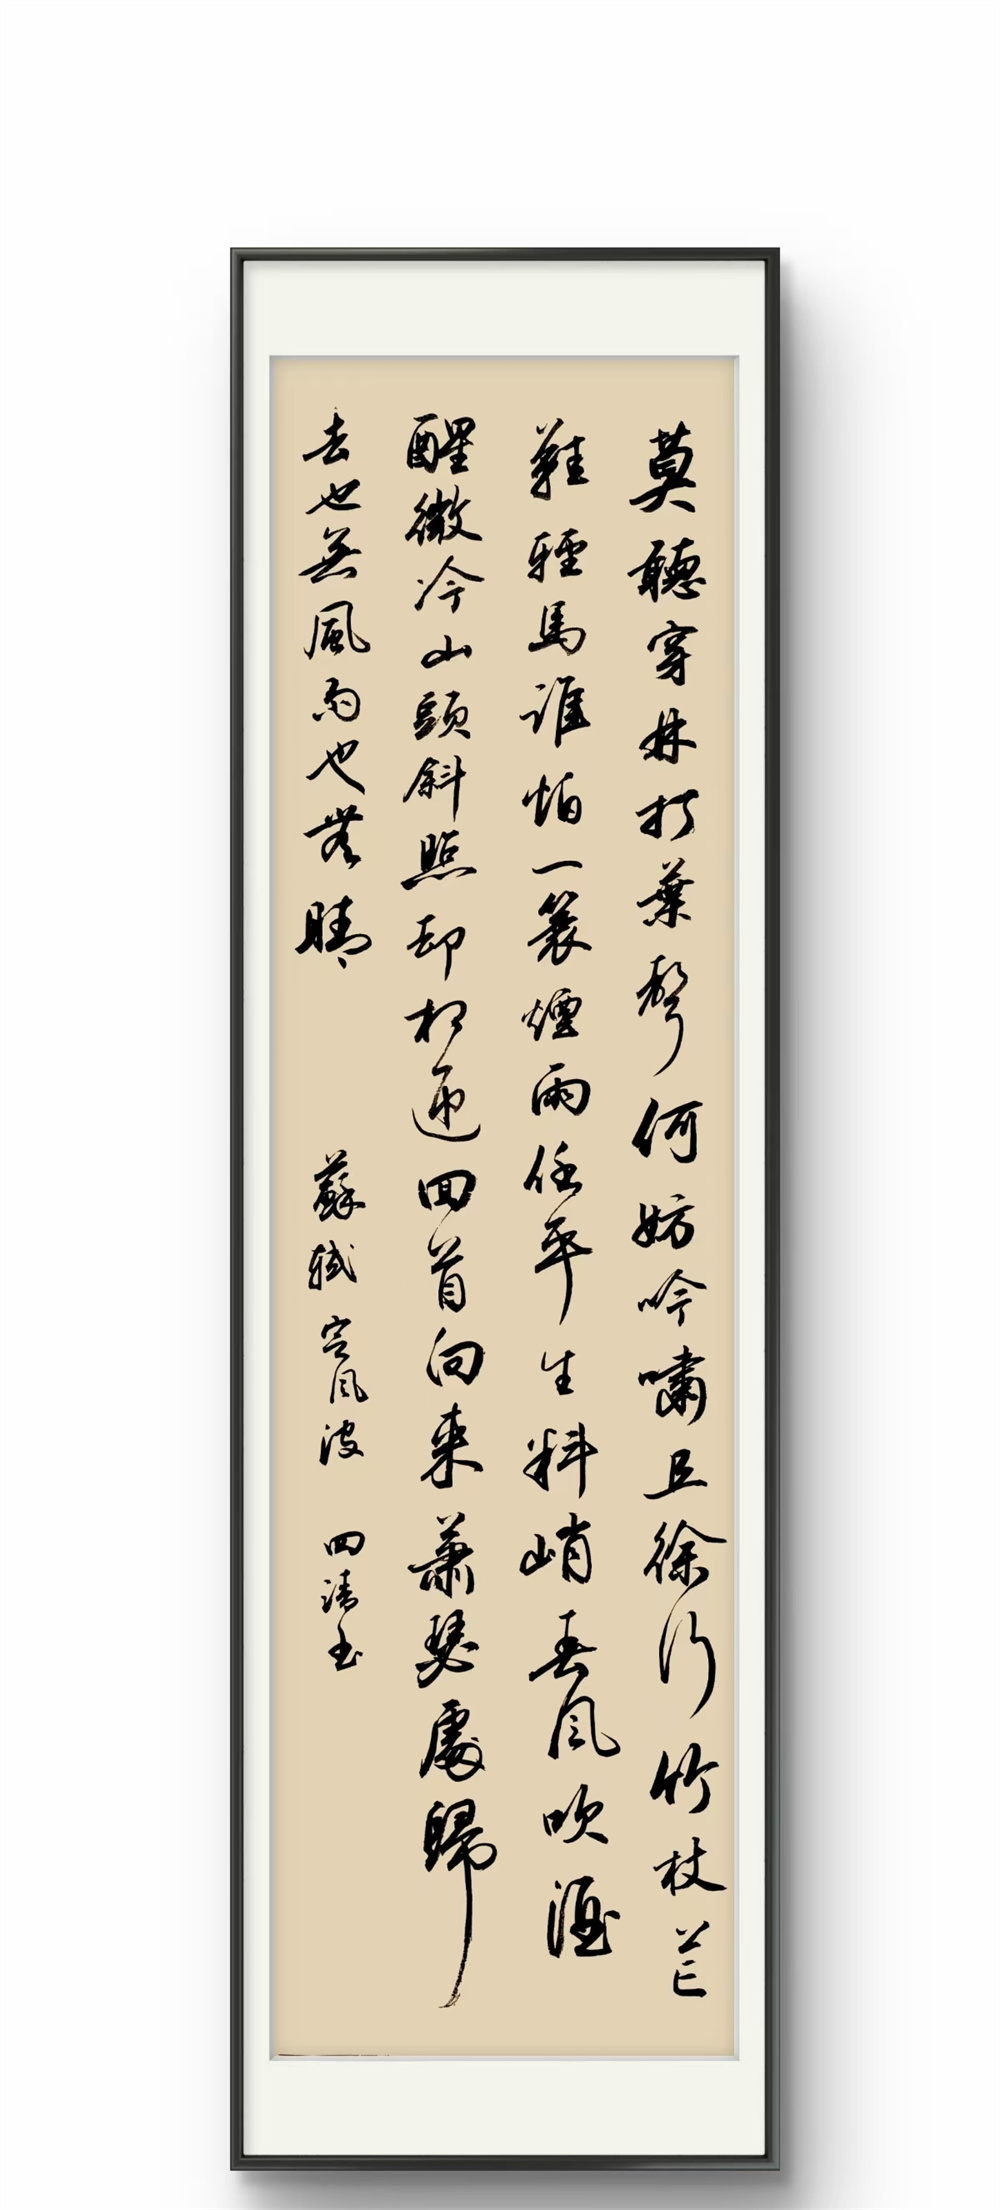 莫聽穿林打葉聲何妨吟嘯且徐行竹杖芒
鞋輕馬誰怕一蓑煙雨任平生料峭春風吹酒
醒微冷山頭斜照却相迎回首向来蕭瑟處歸
去也無風雨也無晴 蘇軾定風波 四清